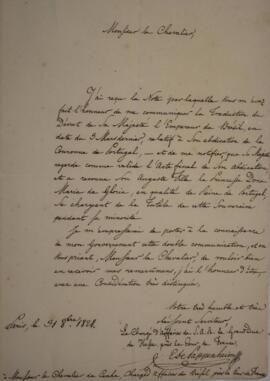 Monsieur le Chevalier,
J'ai reçu la Note par laquelle Vous m'avez
fait l'honneur de me communiquer la Traduction du
Décret de Sa Majesté l'Empereur du Brésil, en
date du 3 Mars dernier, relatif à Son abdication de la
Couronne de Portugal, – et de me notifier, que Sa Majesté
regarde comme valide l'Acte final de Son abdication
et a reconnu Son Auguste fille la Princesse Dona
Maria da Gloria, en qualité de Reine de Portugal,
Se chargeant de la Tutelle de cette Souveraine
pendant Sa minorité.
Je m'empresserai de porter à la connaissance
de mon Gouvernement cette double communication, et en
Vous priant, Monsieur le Chevalier, de vouloir bien
en recevoir mes remerciments, j'ai l'honneur d'être
avec une Considération très distinguée,
Votre très humble et très
obéissant Serviteur,
Le Chargé d'affaires de S.A.R.
de Hesse près la Cour de France,
Paris, le 21
à Monsieur le Chevalier de Chargé d'affaires du Brésil près la Cour de France